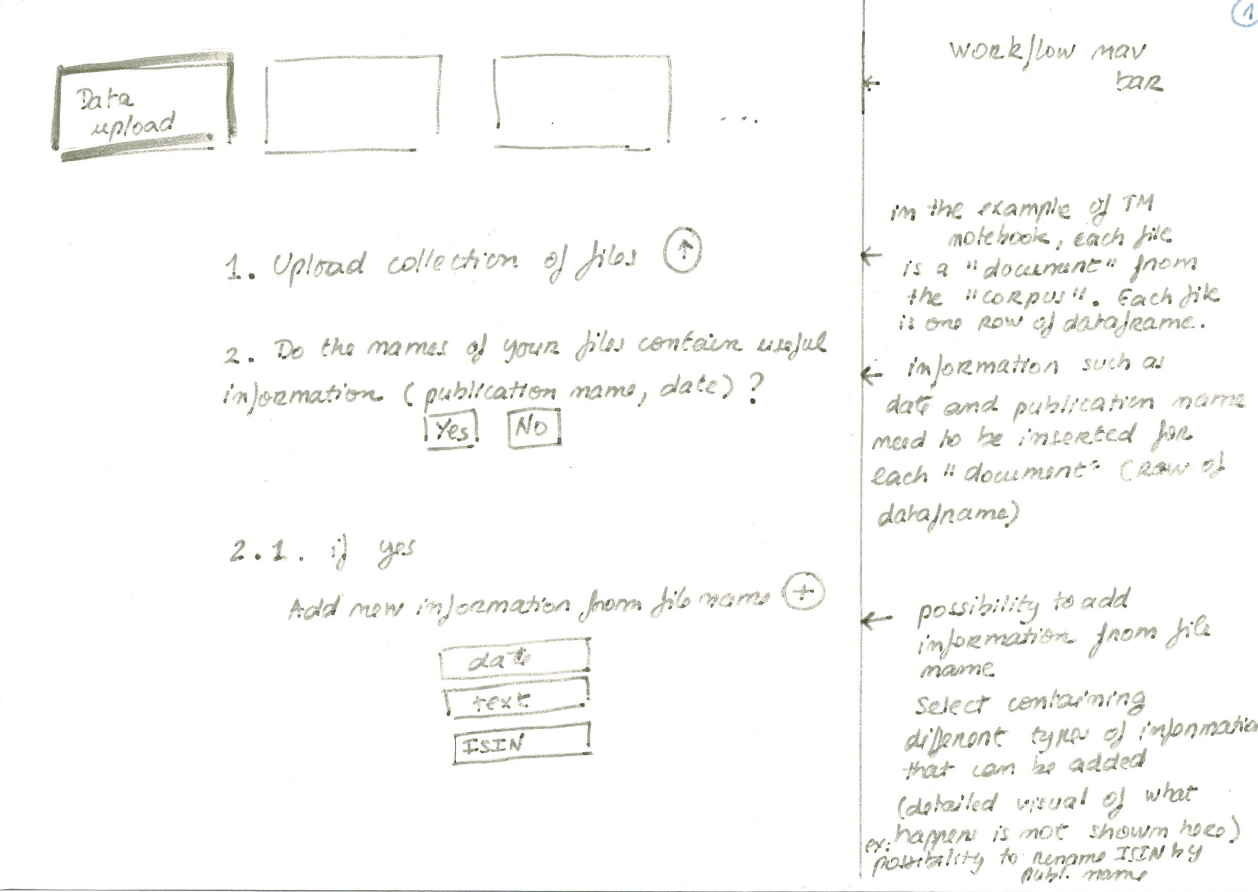 1
Data
upload
...
workflow nav
bar
1. Upload collection of files ↑
2. Do the names of your files contain useful
information (publication name, date) ?
Yes No
2.1. if yes
Add new information from file name +
date
text
ISIN
in the example of TM
notebook, each file
← is a "document" from
the "corpus". Each file
is one row of dataframe.
← information such as
date and publication name
need to be inserted for
each "document" (row of
dataframe)
← possibility to add
information from file
name
Select containing
different types of information
that can be added
(detailed visual of what
happens is not shown here)
ex: possibility to rename ISIN by
publ. name